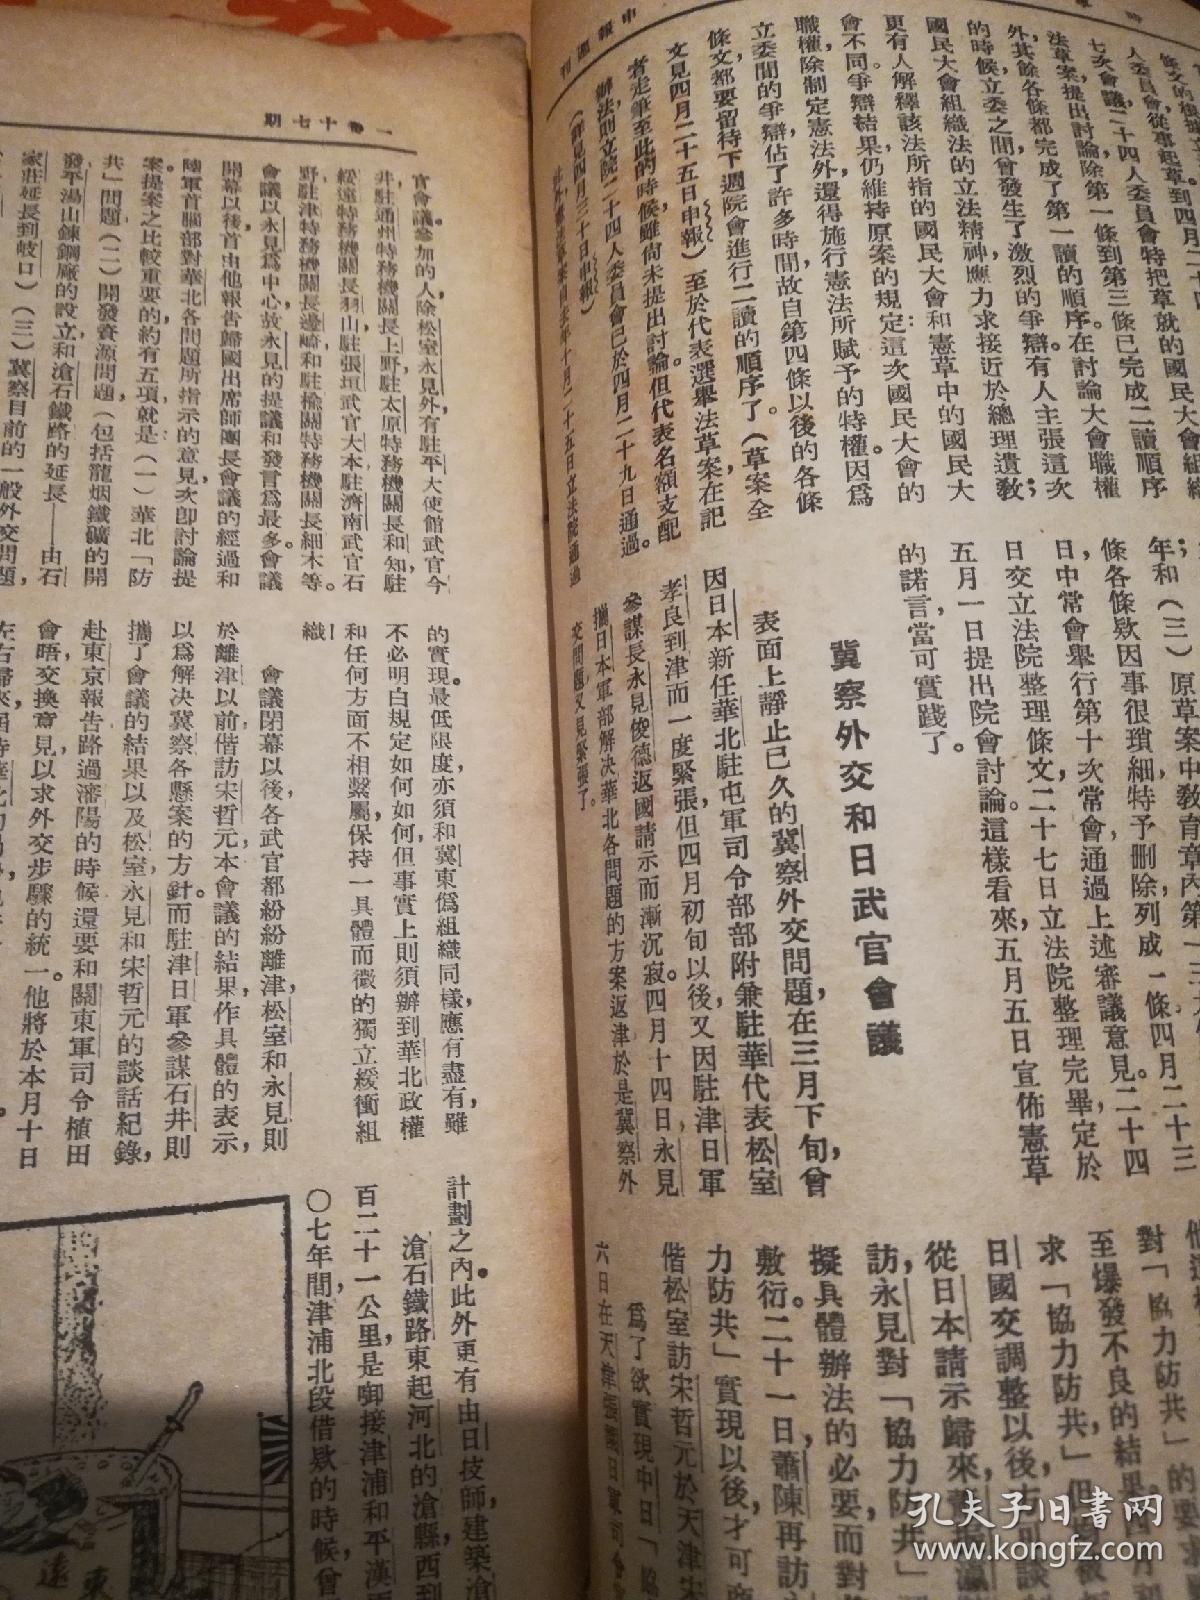 申報週刊
條文的機構
人委員會，從事起草，到四月二十四
七次會議，二十四人委員會特把草就的國民大會組織
法草案，提出討論，除第一條到第三條已完成二讀順序
外，其餘各條都完成了第一讀的順序。在討論大會職權
的時候，立委之間曾發生了激烈的爭辯，有人主張這次
國民大會組織法的立法精神，應力求接近於總理遺教；
更有人解釋該法所指的國民大會和憲草中的國民大
會不同，爭辯結果，仍維持原案的規定：這次國民大會的
職權，除制定憲法外，還得施行憲法所賦予的特權。因爲
立委間的爭辯，佔了許多時間，故自第四條以後的各條
條文，都要留待下週院會進行二讀的順序了。（草案全
文見四月二十五日申報）至於代表選舉法草案，在記
者走筆至此的時候，雖尚未提出討論，但代表名額支配
辦法，則立院二十四人委員會已於四月二十九日通過。
（詳見四月三十日申報）
年和（三）原草案中教育章內第一三
條各條欵，因事很瑣細，特予刪除，列成一條。四月二十三
日中常會舉行第十次常會，通過上述審議意見，二十四
日交立法院整理條文，二十七日立法院整理完畢，定於
五月一日提出院會討論。這樣看來，五月五日宣佈憲草
的諾言，當可實踐了。
冀察外交和日武官會議
表面上靜止已久的冀察外交問題，在三月下旬，曾
因日本新任華北駐屯軍司令部部附兼駐華代表松室
孝良到津而一度緊張，但四月初旬以後，又因駐津日軍
參謀長永見俊德返國請示而漸沉寂。四月十四日永見
攜日本軍部解決華北各問題的方案返津，於是冀察外
交問題又見緊張了。
對「協力防共」的要求
至爆發不良的結果。四月初
求「協力防共」，但
日國交調整以後，方可談
從日本請示歸來，
訪永見，對「協力防共」
擬具體辦法的必要，而對
敷衍。二十一日蕭陳再訪
力防共」實現以後，才可商
偕松室訪宋哲元於天津宋
爲了欲實現中日「協
六日在天津張園日軍司令
一卷十七期
官會議。參加的人，除松室永見外，有駐平大使館武官今
井，駐通州特務機關長上野，駐太原特務機關長和知，駐
綏遠特務機關長羽山，駐張垣武官大本，駐濟南武官石
野，駐津特務機關長邊崎和駐榆關特務機關長細木等。
會議以永見爲中心，故永見的提議和發言爲最多。會議
開幕以後，首由他報告歸國出席師團長會議的經過和
陸軍首腦部對華北各問題所指示的意見，次即討論提
案，提案之比較重要的，約有五項，就是（一）華北「防
共」問題，（二）開發資源問題，（包括龍烟鐵礦的開
發，平湯山鍊鋼廠的設立和滄石鐵路的延長——由石
家莊延長到岐口）（三）冀察目前的一般外交問題，
的實現。最低限度，亦須和冀東僞組織同樣，應有盡有，雖
不必明白規定如何如何，但事實上則須辦到華北政權
和任何方面不相繫屬，保持一具體而微的獨立緩衝組
織
會議閉幕以後，各武官都紛紛離津，松室和永見則
於離津以前，偕訪宋哲元，本會議的結果，作具體的表示，
以爲解決冀察各懸案的方針。而駐津日軍參謀石井則
攜了會議的結果以及松室永見和宋哲元的談話紀錄，
赴東京報告，路過瀋陽的時候，還要和關東軍司令植田
會晤，交換意見，以求外交步驟的統一。他將於本月十日
左右歸來，屆時華北
計劃之內。此外更有由日技師建築滄
滄石鐵路東起河北的滄縣，西到
百二十一公里，是啣接津浦和平漢兩
〇七年間，津浦北段借欵的時候，曾
遠東
孔夫子旧书网
www.kongfz.com